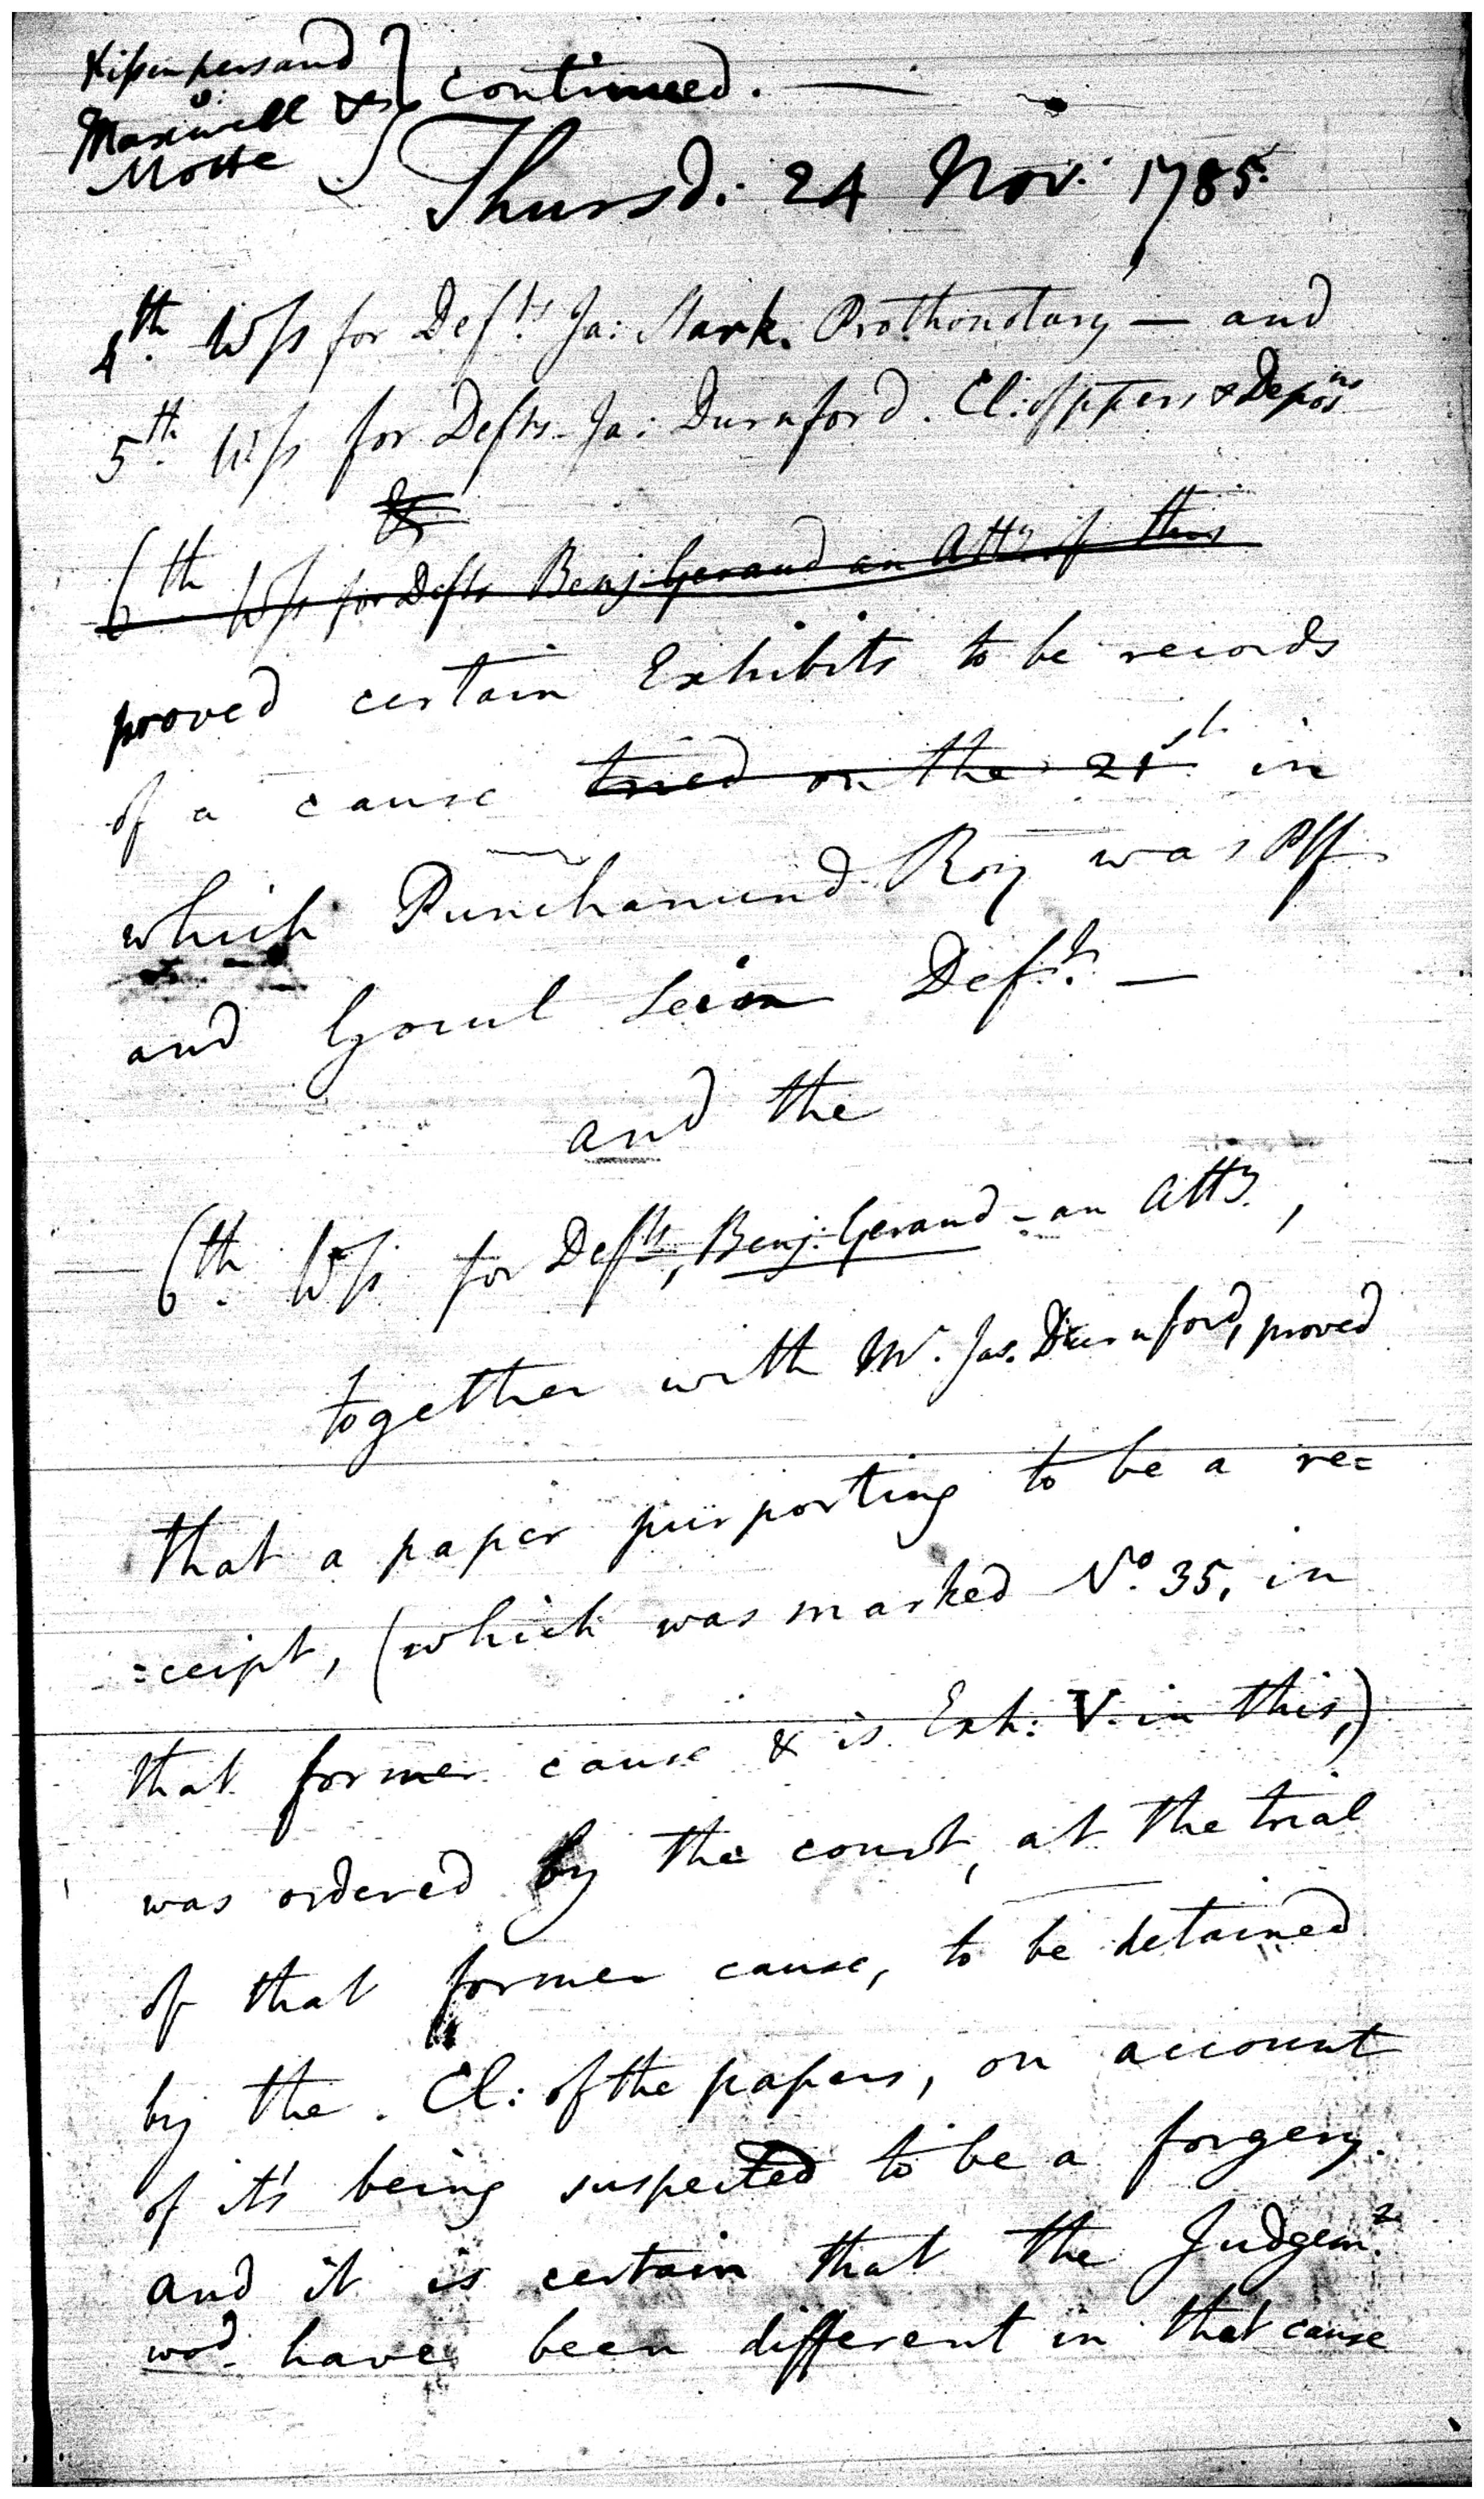 Kissenpersaud
v:
Maxwell &
Motte
continued. —
Thursd: 24 Nov: 1785.
4th. Wss for Defts. Ja: Stark. Prothonotary — and
5th. Wss for Defts. Ja: Durnford. Cl: of ppers & Deposns
&
6th Wss for Defts Benj: Geraud an Atty of this
proved certain Exhibits to be records
of a cause tried on the 21st. in
which Punchanund Roy was Plff
and Gocul Seion Deft. —
and the
— 6th. Wss for Defts, Benj: Geraud - an Atty,
together with Mr. Jas. Durnford, proved
that a paper purporting to be a re=
=ceipt, (which was marked No. 35. in
that former cause & is Exh: V. in this,)
was ordered by the court, at the trial
of that former cause, to be detained
by the Cl: of the papers, on account
of it's being suspected to be a forgery.
and it is certain that the Judgemt.
wod. have been different in that cause